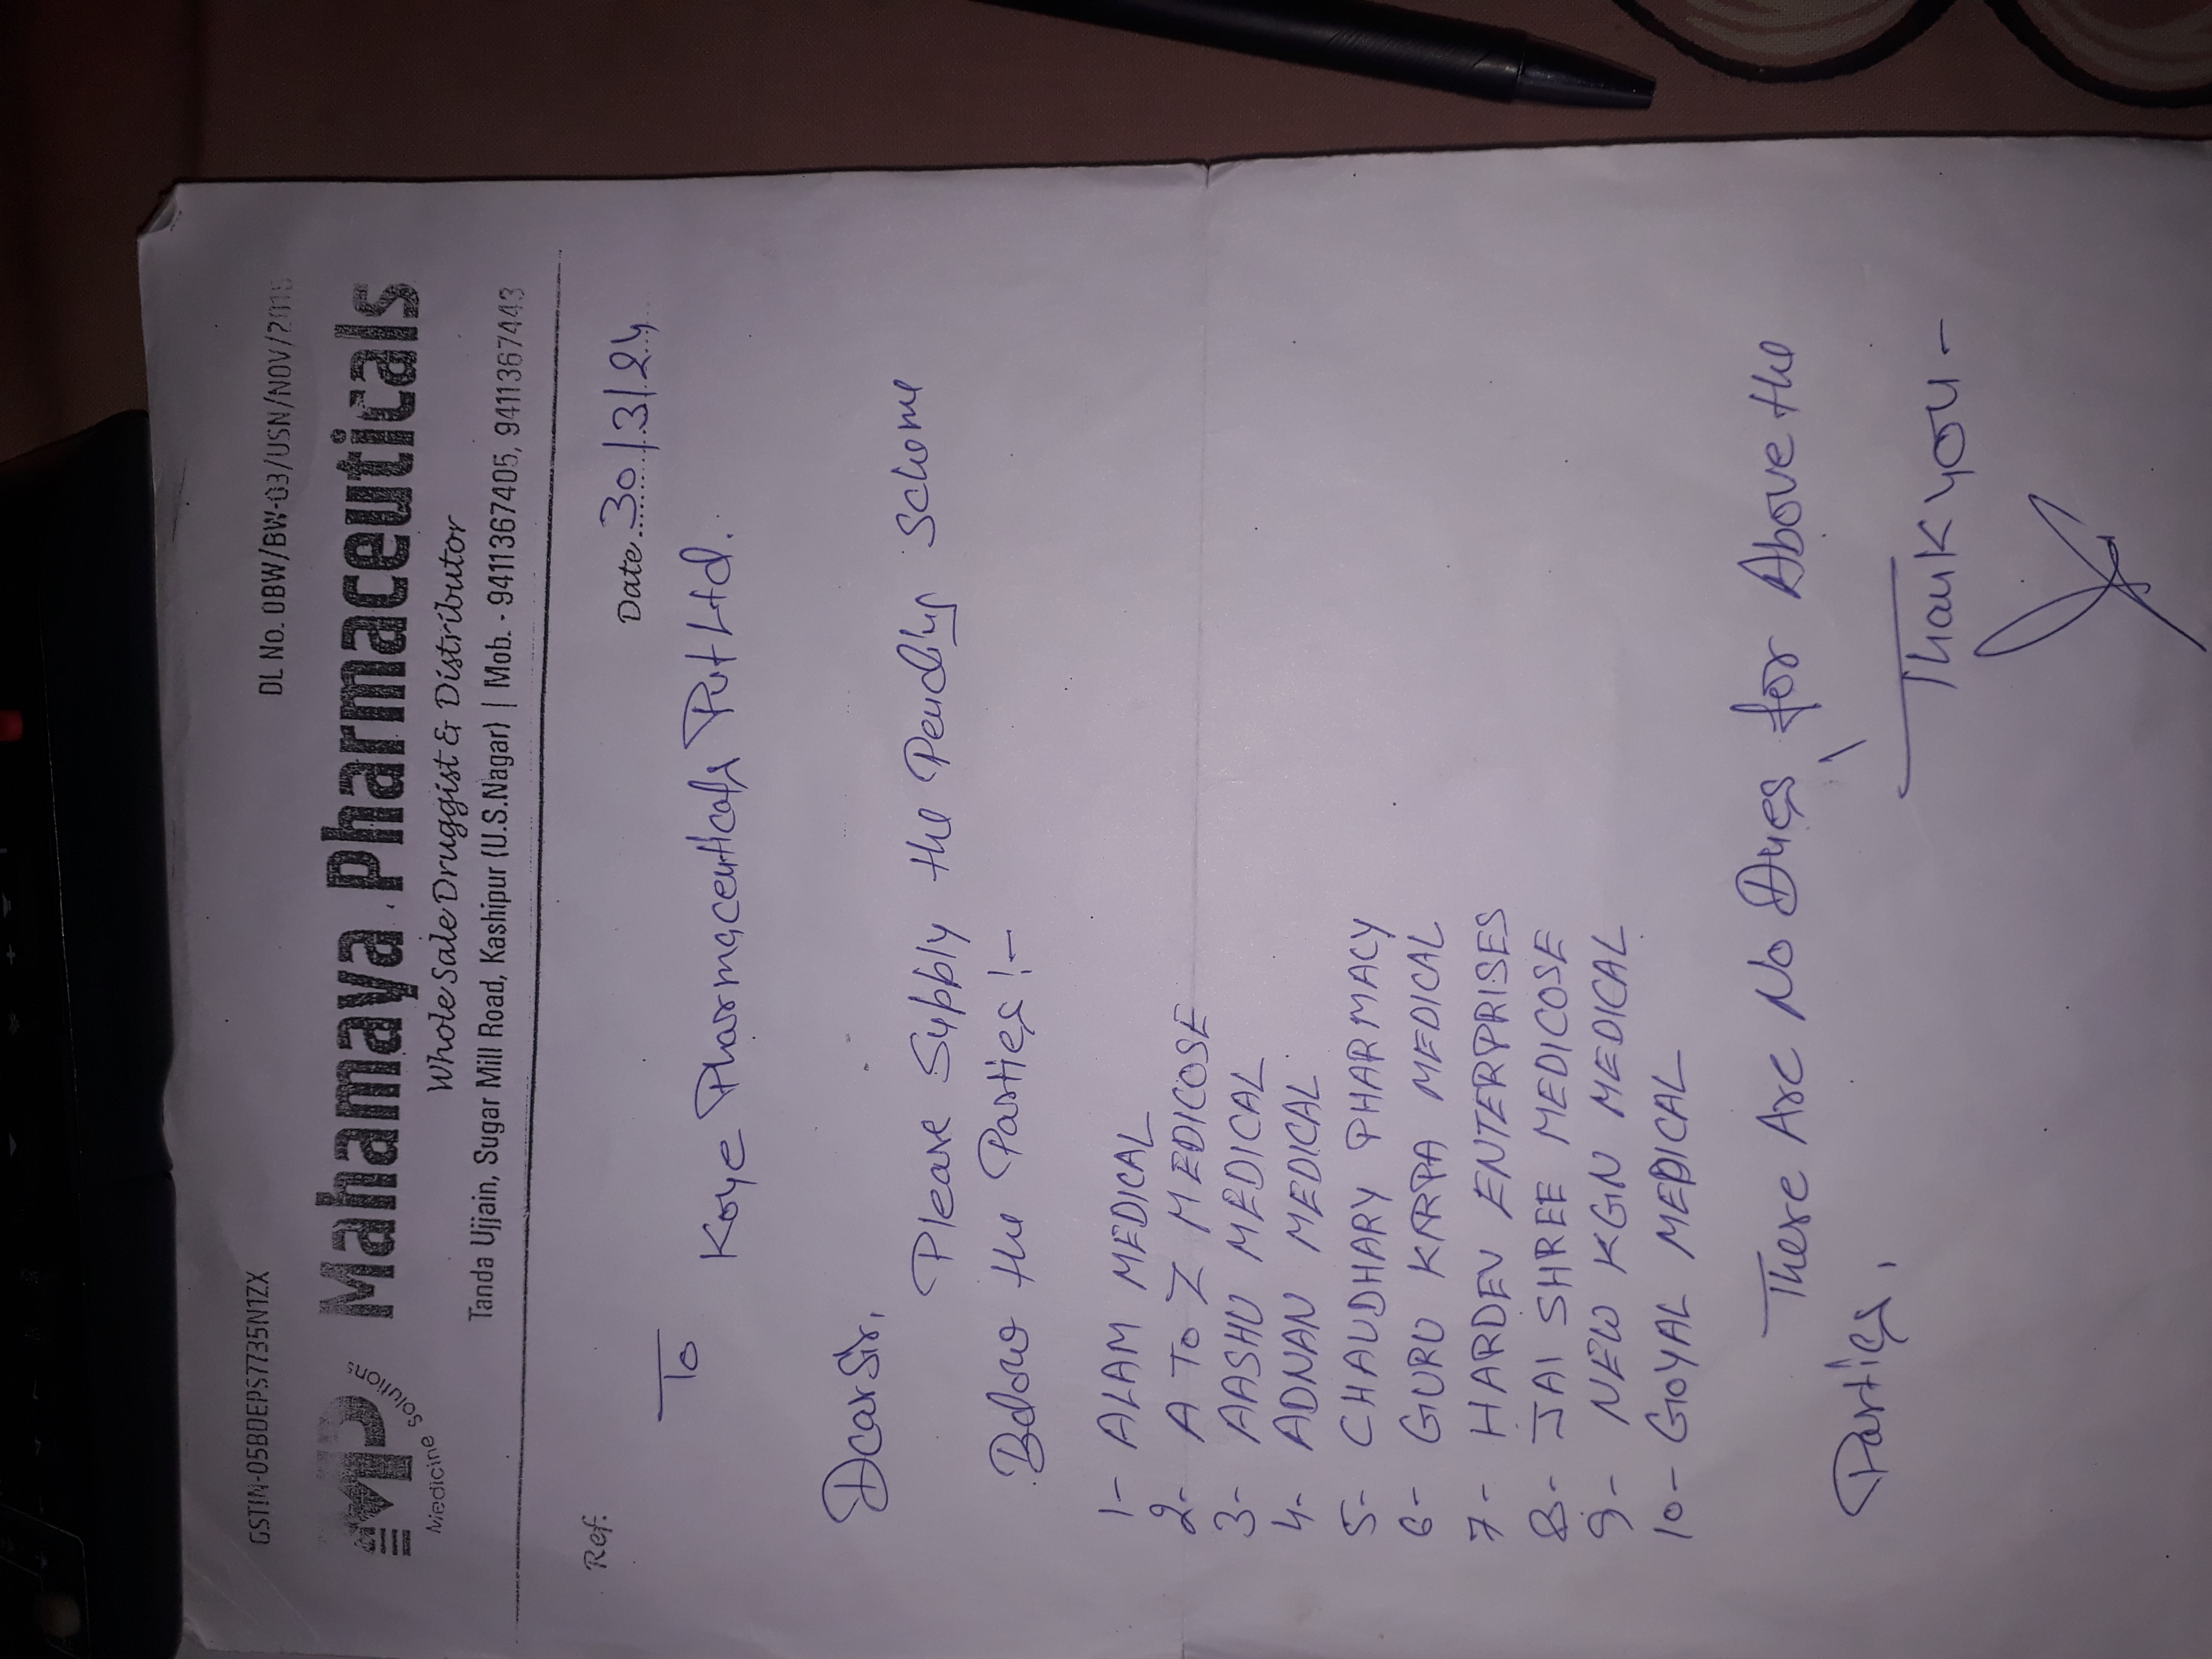 GSTIN-05BDEPS7735N1ZX
DL No. OBW/BW-03/USN/NOV/2018
MP
Medicine Solutions
Mahamaya Pharmaceuticals
Whole Sale Druggist & Distributor
Tanda Ujjain, Sugar Mill Road, Kashipur (U.S.Nagar) | Mob. - 9411367405, 9411367443
Ref.
Date..30/3/24
To
Koye Pharmaceuticals Pvt Ltd.
Dear Sir,
Please Supply the Pending Scheme
Below the Parties :-
1- ALAM MEDICAL
2- A To Z MEDICOSE
3- AASHU MEDICAL
4- ADNAN MEDICAL
5- CHAUDHARY PHARMACY
6- GURU KRPA MEDICAL
7- HARDEV ENTERPRISES
8- JAI SHREE MEDICOSE
9- NEW KGN MEDICAL
10- GOYAL MEDICAL
There Are No Dues for Above the
Parties.
Thank you -